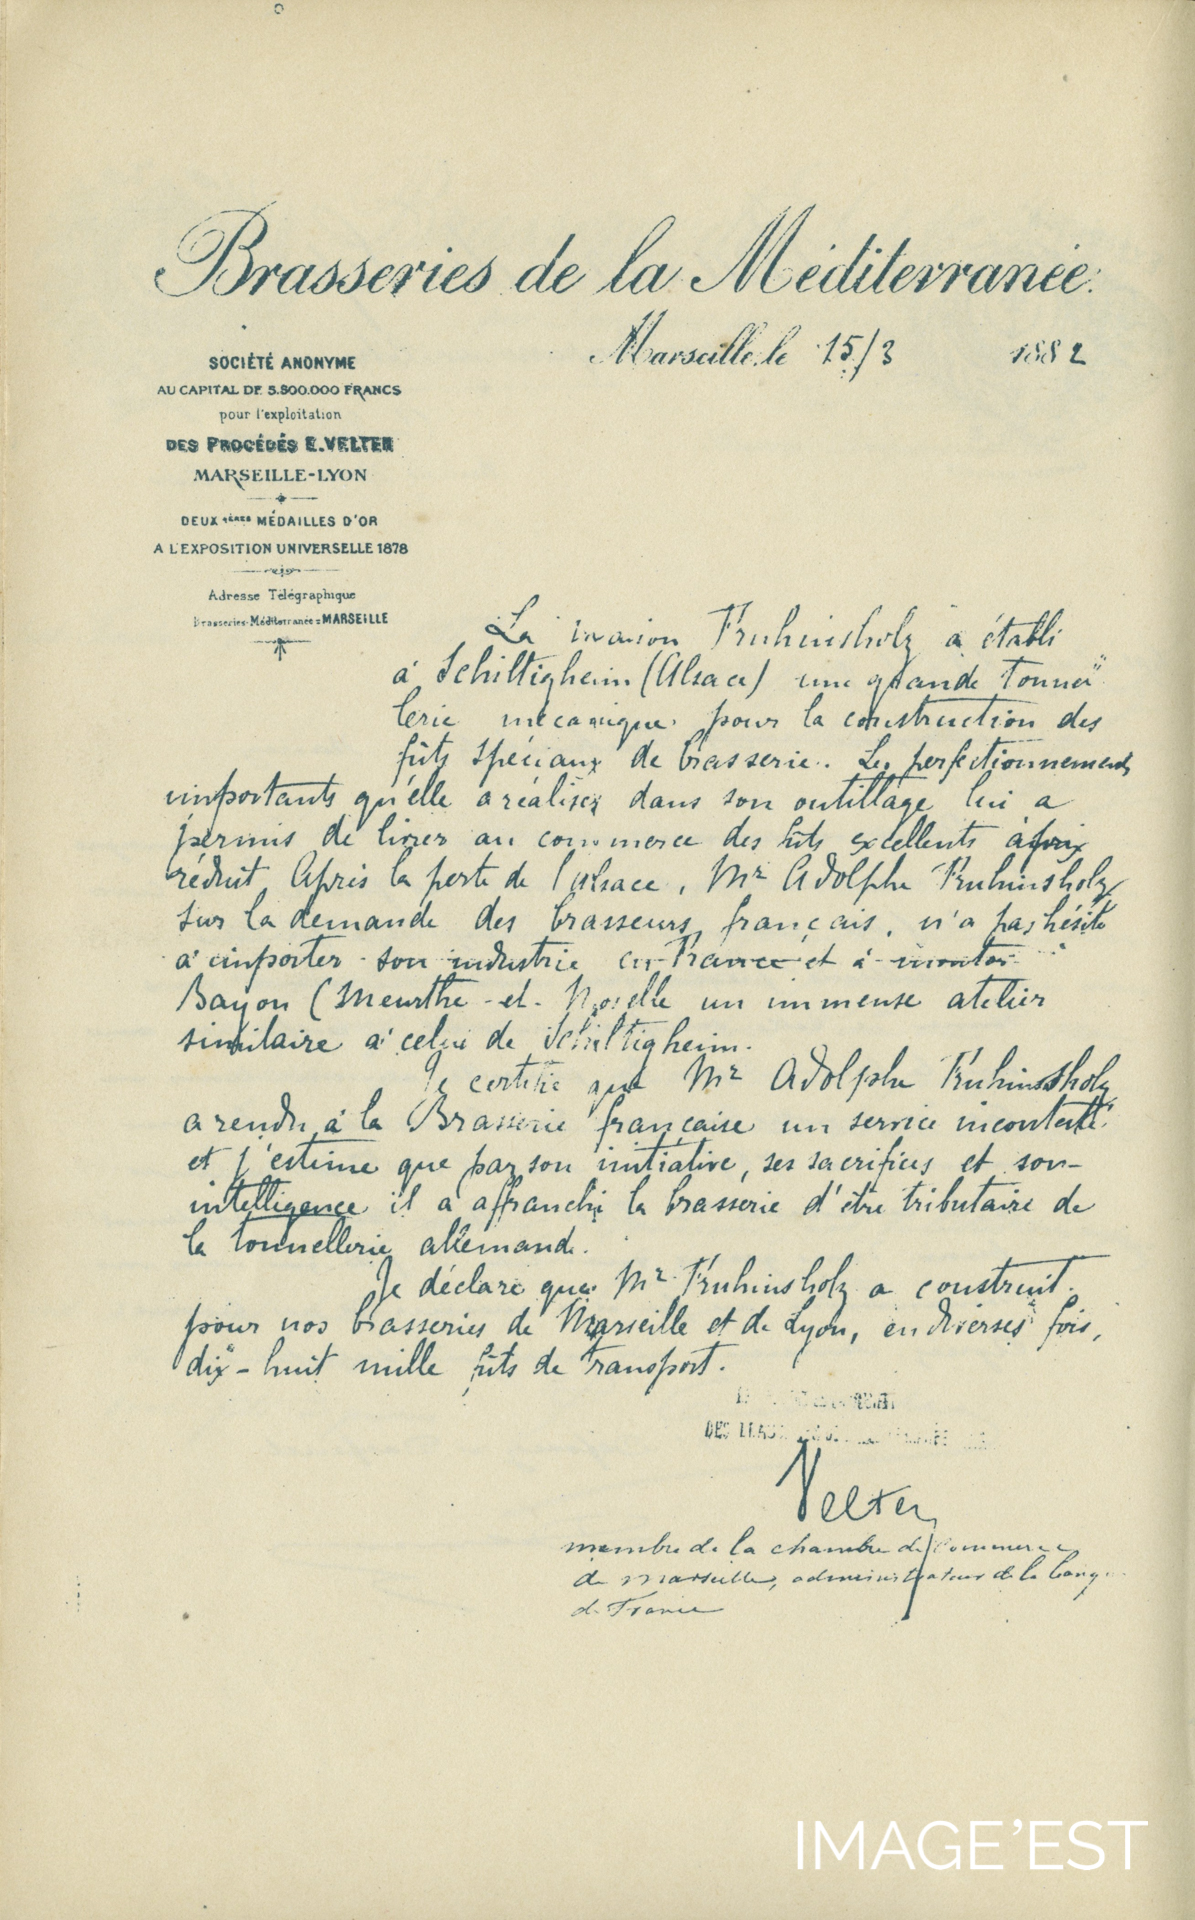 Brasseries de la Méditerranée.
Marseille, le 15/3 1882
SOCIÉTÉ ANONYME
AU CAPITAL DE 5.800.000 FRANCS
pour l'exploitation
DES PROCÉDÉS E. VELTEN
MARSEILLE-LYON
DEUX 1ères MÉDAILLES D'OR
A L'EXPOSITION UNIVERSELLE 1878
Adresse Télégraphique
Brasseries-Méditerranée = MARSEILLE
La maison Fruhinsholz a établi
à Schiltigheim (Alsace) une grande Tonnel
lerie mécanique pour la construction des
fûts spéciaux de brasserie. Les perfectionnements
importants qu'elle a réalisés dans son outillage lui a
permis de livrer au commerce des fûts excellents à prix
réduit Après la perte de l'Alsace, Mr Adolphe Fruhinsholz,
sur la demande des brasseurs français, n'a pas hésité
à importer son industrie en France et à monter à
Bayon (Meurthe-et-Moselle un immense atelier
similaire à celui de Schiltigheim.
Je certifie que Mr Adolphe Fruhinsholz
a rendu à la Brasserie française un service incontesté
et j'estime que par son initiative, ses sacrifices et son
intelligence il a affranchi la brasserie d'être tributaire de
la tonnellerie allemande.
Je déclare que Mr Fruhinsholz a construit
pour nos brasseries de Marseille et de Lyon, en diverses fois,
dix-huit mille fûts de transport.
DES
Velten
membre de la chambre de commerce
de Marseille, administrateur de la
de France
IMAGE'EST